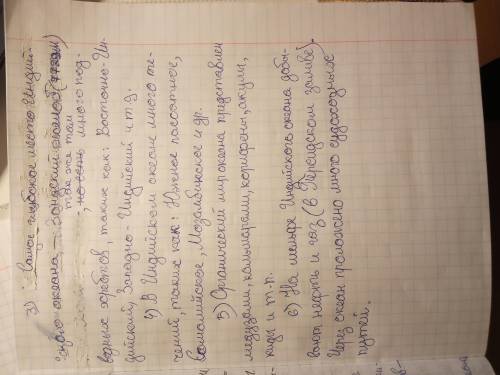 3) Самое глубокое место Индий-
ского океана – Зондский желоб (7729м)
так же там
, но есть много под-
водных хребтов, таких как: Восточно-Ин-
дийский, Западно-Индийский и т.д.
4) В Индийском океане много те-
чений, таких как: Южное пассатное,
Сомалийское, Мозамбикское и др.
5) Органический мир океана представлен
медузами, кальмарами, корифены, акулы,
киды и т.п.
6) На шельфе Индийского океана добы-
вают нефть и газ (в Персидском заливе).
Через океан проложено много судоходных
путей.